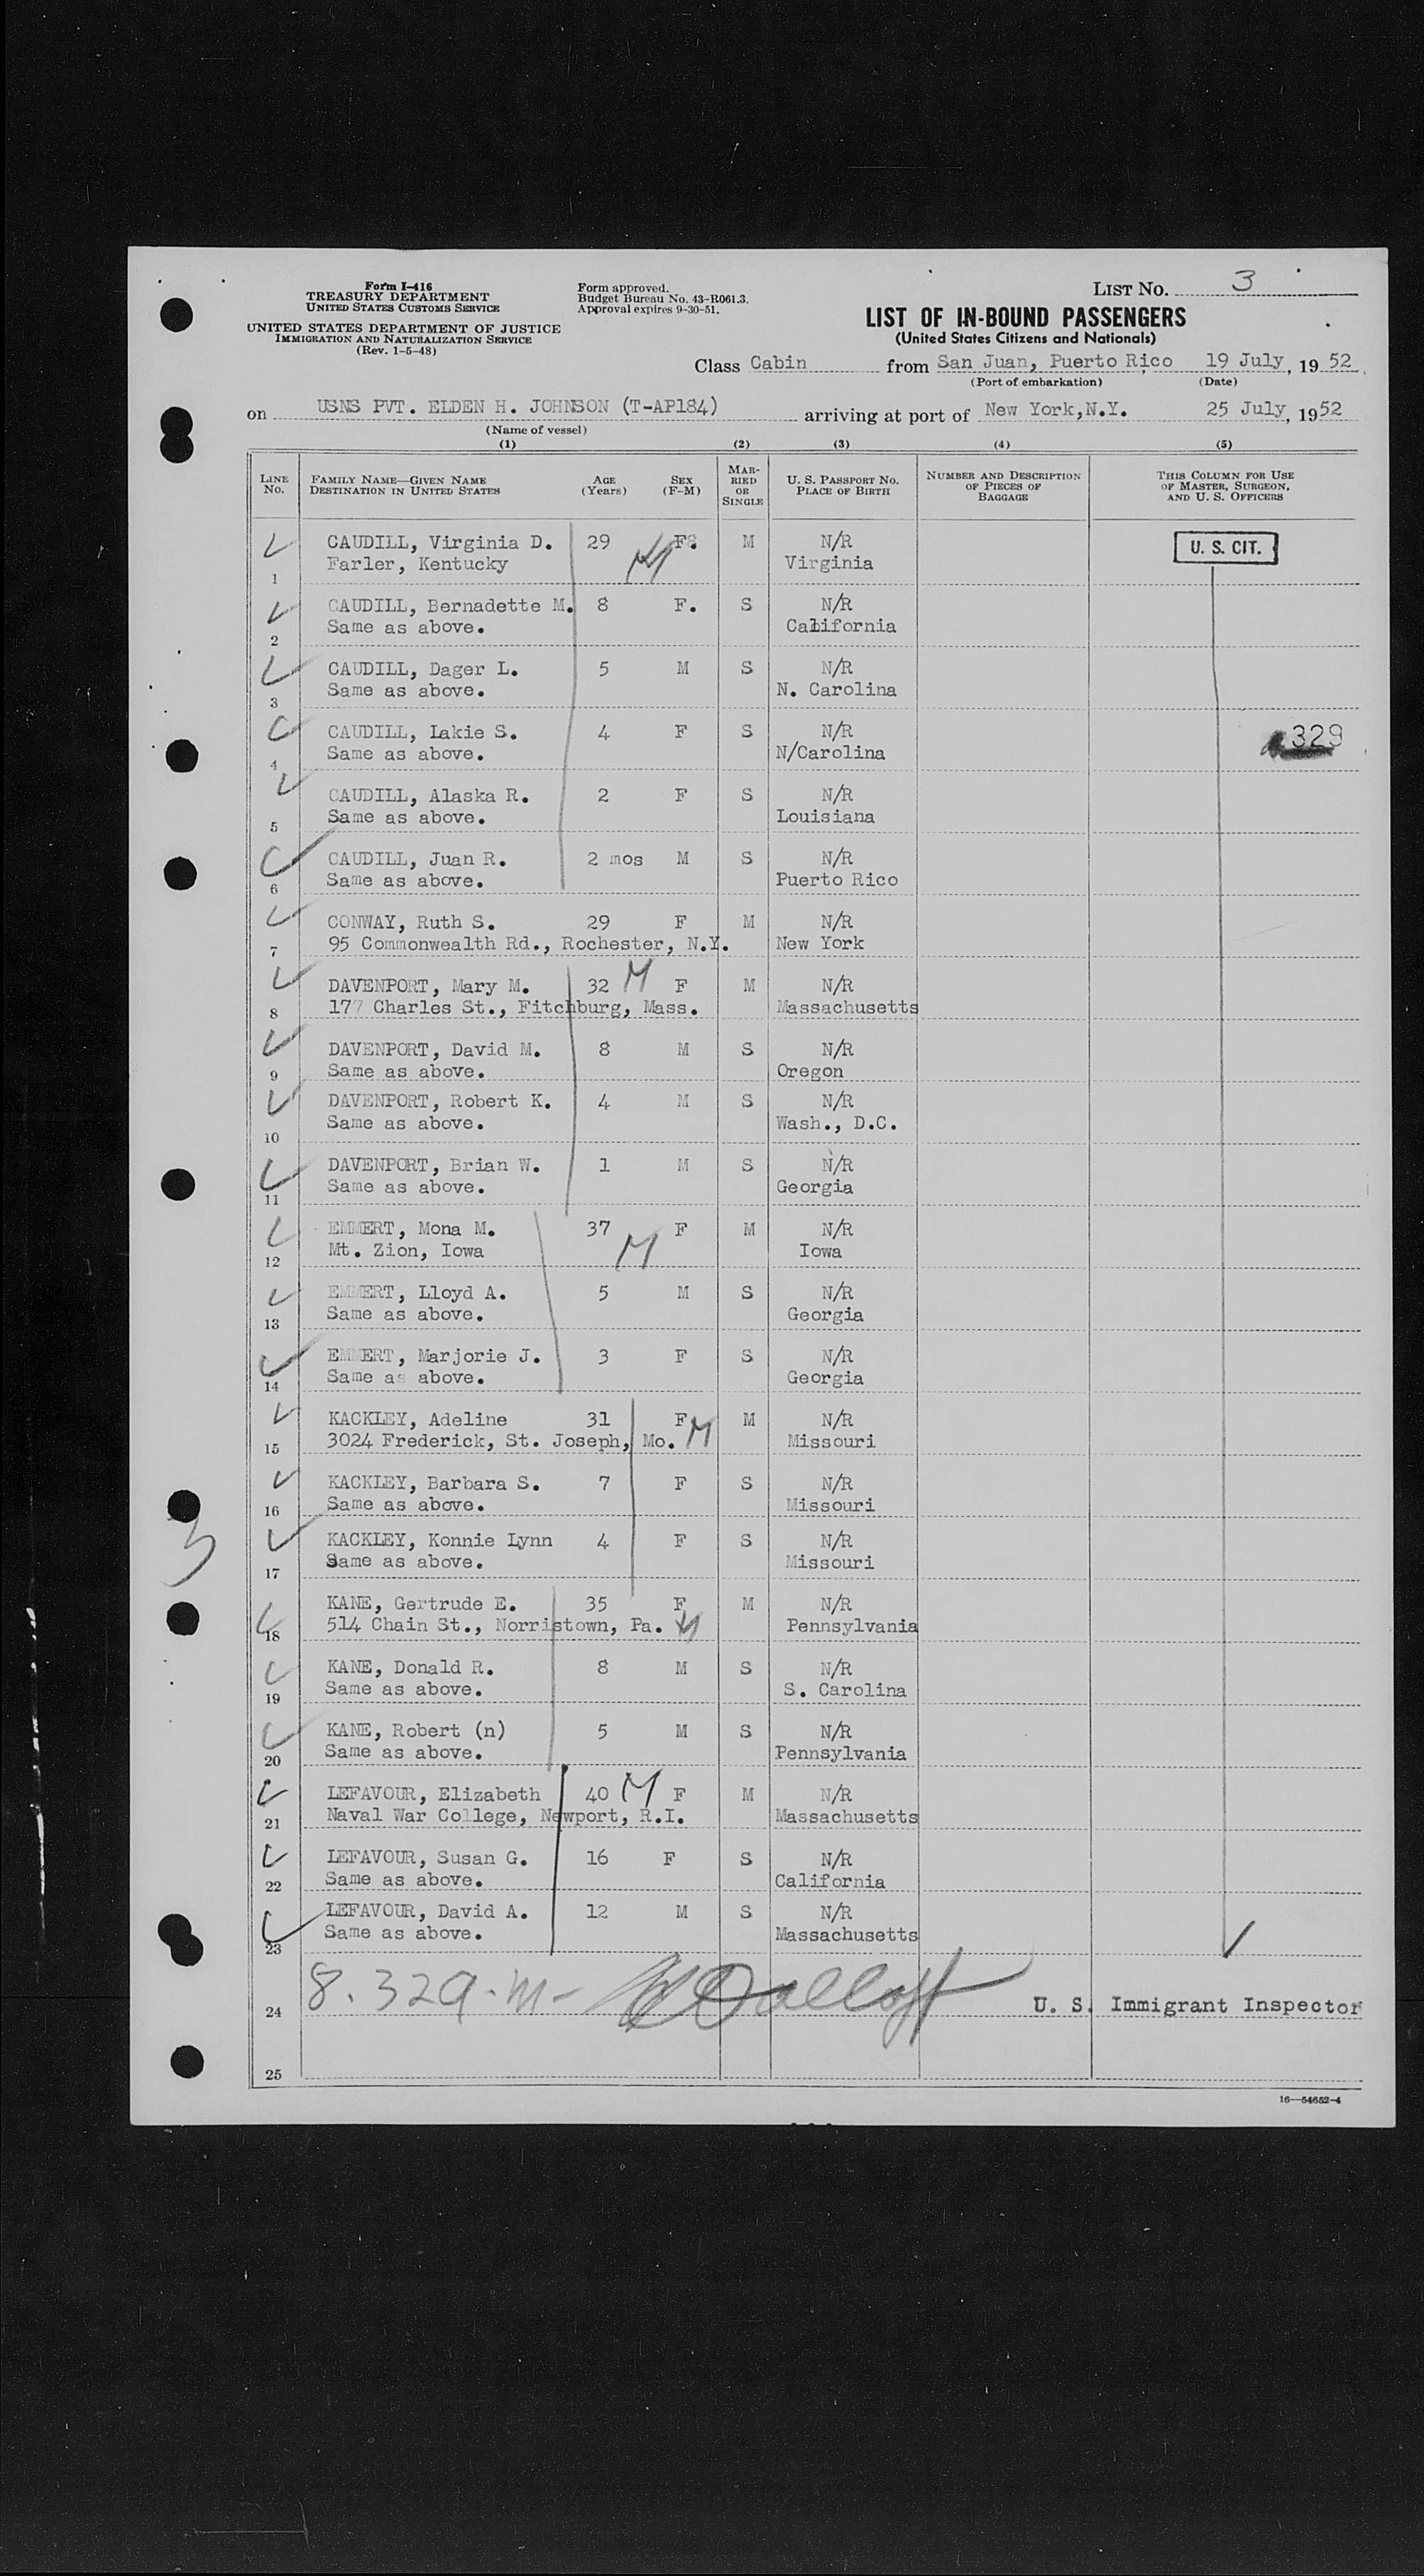 Form I-416
TREASURY DEPARTMENT
UNITED STATES CUSTOMS SERVICE
UNITED STATES DEPARTMENT OF JUSTICE
IMMIGRATION AND NATURALIZATION SERVICE
(Rev. 1-5-48)
Form approved.
Budget Bureau No. 43-R061.3.
Approval expires 9-30-51.
LIST NO. 3
LIST OF IN-BOUND PASSENGERS
(United States Citizens and Nationals)
Class Cabin from San Juan, Puerto Rico 19 July, 19 52
(Port of embarkation) (Date)
on USNS PVT. ELDEN H. JOHNSON (T-AP184) arriving at port of New York,N.Y. 25 July, 1952
(Name of vessel)
(1) (2) (3) (4) (5)
LINE No. FAMILY NAME—GIVEN NAME DESTINATION IN UNITED STATES AGE (Years) SEX (F-M) MARRIED OR SINGLE U. S. PASSPORT NO. PLACE OF BIRTH NUMBER AND DESCRIPTION OF PIECES OF BAGGAGE THIS COLUMN FOR USE OF MASTER, SURGEON, AND U. S. OFFICERS
CAUDILL, Virginia D. 29 F. M N/R U. S. CIT.
1 Farler, Kentucky M Virginia
CAUDILL, Bernadette M. 8 F. S N/R
2 Same as above. California
CAUDILL, Dager L. 5 M S N/R
3 Same as above. N. Carolina
CAUDILL, Lakie S. 4 F S N/R 329
4 Same as above. N/Carolina
CAUDILL, Alaska R. 2 F S N/R
5 Same as above. Louisiana
CAUDILL, Juan R. 2 mos M S N/R
6 Same as above. Puerto Rico
CONWAY, Ruth S. 29 F M N/R
7 95 Commonwealth Rd., Rochester, N.Y. New York
DAVENPORT, Mary M. 32 M F M N/R
8 177 Charles St., Fitchburg, Mass. Massachusetts
DAVENPORT, David M. 8 M S N/R
9 Same as above. Oregon
DAVENPORT, Robert K. 4 M S N/R
10 Same as above. Wash., D.C.
DAVENPORT, Brian W. 1 M S N/R
11 Same as above. Georgia
EMMERT, Mona M. 37 F M N/R
12 Mt. Zion, Iowa M Iowa
EMMERT, Lloyd A. 5 M S N/R
13 Same as above. Georgia
EMMERT, Marjorie J. 3 F S N/R
14 Same as above. Georgia
KACKLEY, Adeline 31 F M N/R
15 3024 Frederick, St. Joseph, Mo. M Missouri
KACKLEY, Barbara S. 7 F S N/R
16 Same as above. Missouri
KACKLEY, Konnie Lynn 4 F S N/R
17 Same as above. Missouri
KANE, Gertrude E. 35 F M N/R
18 514 Chain St., Norristown, Pa. M Pennsylvania
KANE, Donald R. 8 M S N/R
19 Same as above. S. Carolina
KANE, Robert (n) 5 M S N/R
20 Same as above. Pennsylvania
LEFAVOUR, Elizabeth 40 M F M N/R
21 Naval War College, Newport, R.I. Massachusetts
LEFAVOUR, Susan G. 16 F S N/R
22 Same as above. California
LEFAVOUR, David A. 12 M S N/R
23 Same as above. Massachusetts
24 8.32 a.m- U. S. Immigrant Inspector
25
16—54652-4
3